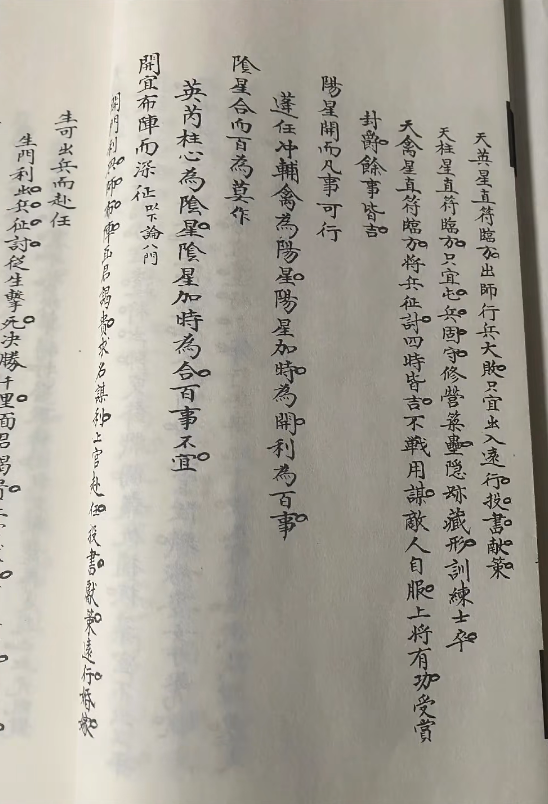 天英星直符臨方。出師行兵大敗。只宜出入遠行。投書。獻策。
天柱星直符臨方。只宜屯兵。固守。修營築壘。隱跡藏形。訓練士卒。
天禽星直符臨方。將兵征討。四時皆吉。不戰用謀。敵人自服。上將有功。受賞
封爵。餘事皆吉。
陽星開而凡事可行
蓬任冲輔禽為陽星。陽星加時。為開。利為百事。
陰星合而百為莫作
英芮柱心為陰星。陰星加時為合。百事不宜。
開宜布陣而深征以下論八門
開門利興師。布陣。面君謁貴。求名謀利。上官赴任。投書。獻策。遠行。婚嫁。
生可出兵而赴任
生門利出。兵。征討。從生擊死。決勝千里。面君謁貴。